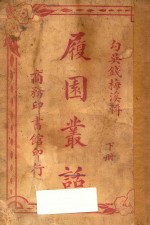 勾吳錢梅溪輯
下册
履園叢話
商務印書館印行